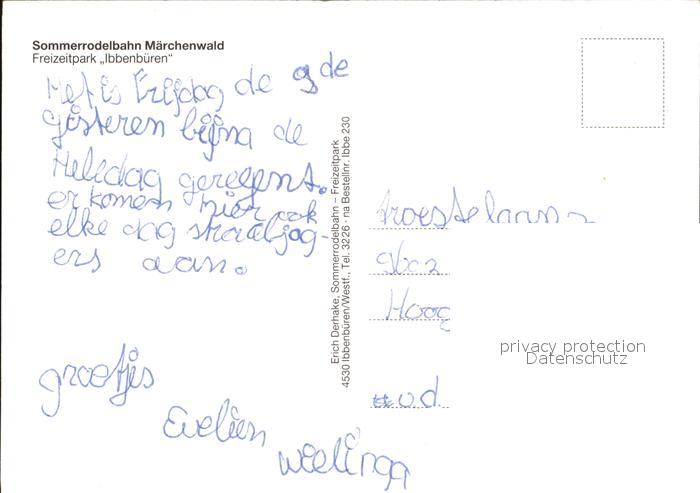 Sommerrodelbahn Märchenwald
Freizeitpark „Ibbenbüren"
Het is Vrijdag de 9de
gisteren bijna de
Heledag geregent.
er komen hier ook
elke dag straaljag-
ers aan.
groetjes
Evelien
Wielinga
Erich Derhake, Sommerrodelbahn – Freizeitpark
4530 Ibbenbüren/Westf., Tel. 3226 · na Bestellnr. Ibbe 230
Hoog
privacy protection
Datenschutz